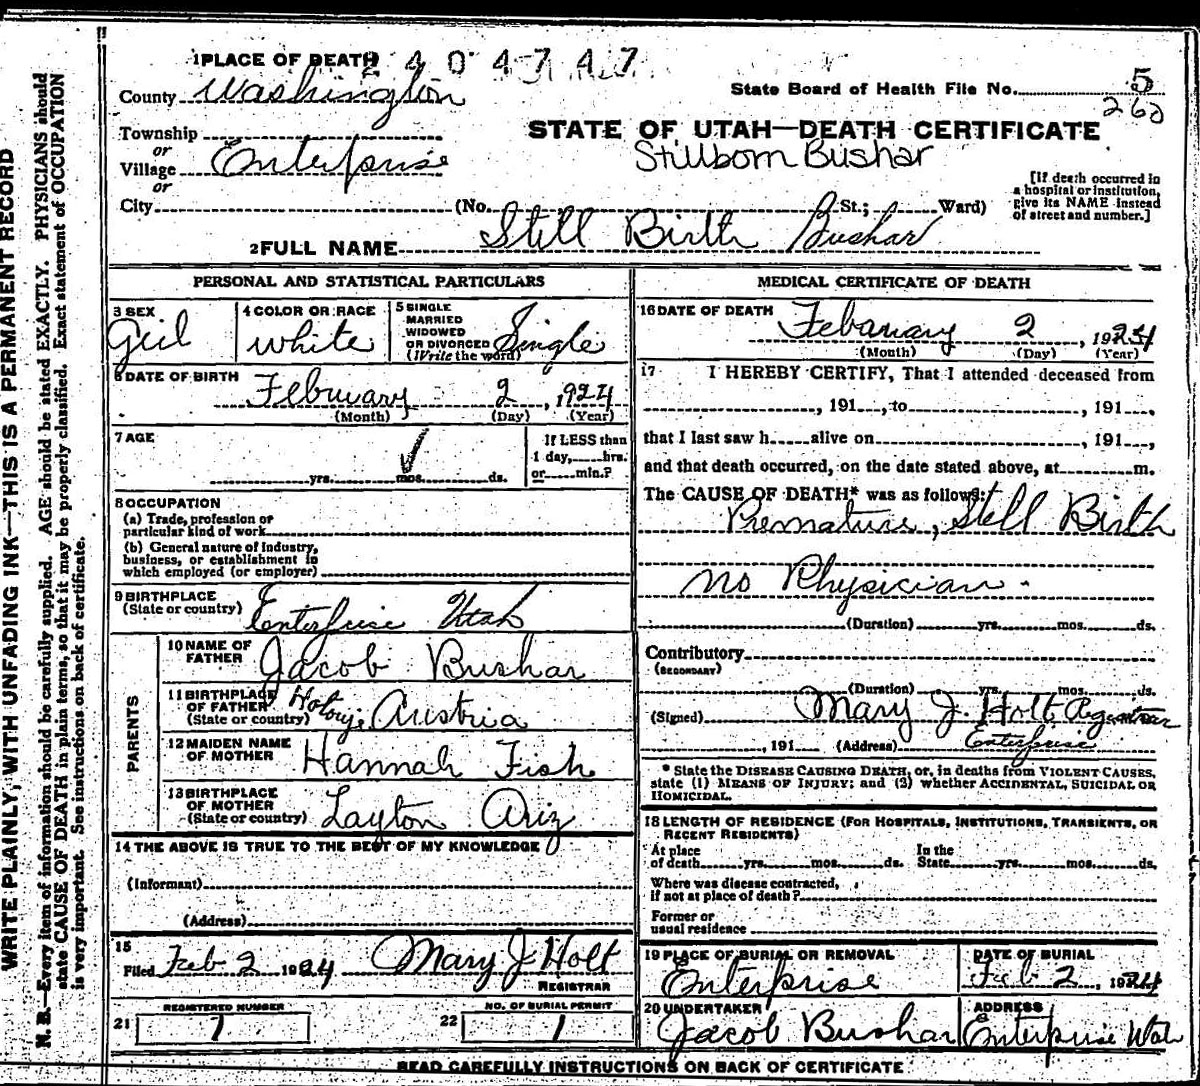 WRITE PLAINLY, WITH UNFADING INK—THIS IS A PERMANENT RECORD
N. B.—Every item of information should be carefully supplied. AGE should be stated EXACTLY. PHYSICIANS should
state CAUSE OF DEATH in plain terms, so that it may be properly classified. Exact statement of OCCUPATION
is very important. See instructions on back of certificate.
1 PLACE OF DEATH 2 4 0 4 7 4 7
County Washington
State Board of Health File No. 5
260
Township
or
Village Enterprise
or
STATE OF UTAH—DEATH CERTIFICATE
Stillborn Bushar
[If death occurred in
a hospital or institution,
give its NAME instead
of street and number.]
City (No. St.; Ward)
2 FULL NAME Still Birth Bushar
PERSONAL AND STATISTICAL PARTICULARS
3 SEX
Girl
4 COLOR OR RACE
White
5 SINGLE
MARRIED
WIDOWED
OR DIVORCED
(Write the word)
Single
6 DATE OF BIRTH
February 2, 1924
(Month) (Day) (Year)
7 AGE
yrs. mos. ds.
If LESS than
1 day, hrs.
or min.?
8 OCCUPATION
(a) Trade, profession or
particular kind of work
(b) General nature of industry,
business, or establishment in
which employed (or employer)
9 BIRTHPLACE
(State or country) Enterprise Utah
PARENTS
10 NAME OF
FATHER Jacob Bushar
11 BIRTHPLACE
OF FATHER
(State or country) Austria
12 MAIDEN NAME
OF MOTHER Hannah Fish
13 BIRTHPLACE
OF MOTHER
(State or country) Layton Ariz
14 THE ABOVE IS TRUE TO THE BEST OF MY KNOWLEDGE
(Informant)
(Address)
15
Filed Feb 2 1924 Mary J Holt
REGISTRAR
REGISTERED NUMBER
21 7
NO. OF BURIAL PERMIT
22 1
MEDICAL CERTIFICATE OF DEATH
16 DATE OF DEATH
Febuary 2, 1924
(Month) (Day) (Year)
17 I HEREBY CERTIFY, That I attended deceased from
, 191 , to , 191 .
that I last saw h alive on , 191 ,
and that death occurred, on the date stated above, at m.
The CAUSE OF DEATH* was as follows:
Premature, Still Birth
No Physician.
(Duration) yrs. mos. ds.
Contributory
(SECONDARY)
(Duration) yrs. mos. ds.
(Signed) Mary J. Holt, Registrar
, 191 (Address) Enterprise
* State the DISEASE CAUSING DEATH, or, in deaths from VIOLENT CAUSES,
state (1) MEANS OF INJURY; and (2) whether ACCIDENTAL, SUICIDAL OR
HOMICIDAL.
18 LENGTH OF RESIDENCE (FOR HOSPITALS, INSTITUTIONS, TRANSIENTS, OR
RECENT RESIDENTS)
At place
of death yrs. mos. ds.
In the
State yrs. mos. ds.
Where was disease contracted,
if not at place of death?
Former or
usual residence
19 PLACE OF BURIAL OR REMOVAL
Enterprise
DATE OF BURIAL
Feb 2, 1924
20 UNDERTAKER
Jacob Bushar
ADDRESS
Enterprise Utah
READ CAREFULLY INSTRUCTIONS ON BACK OF CERTIFICATE